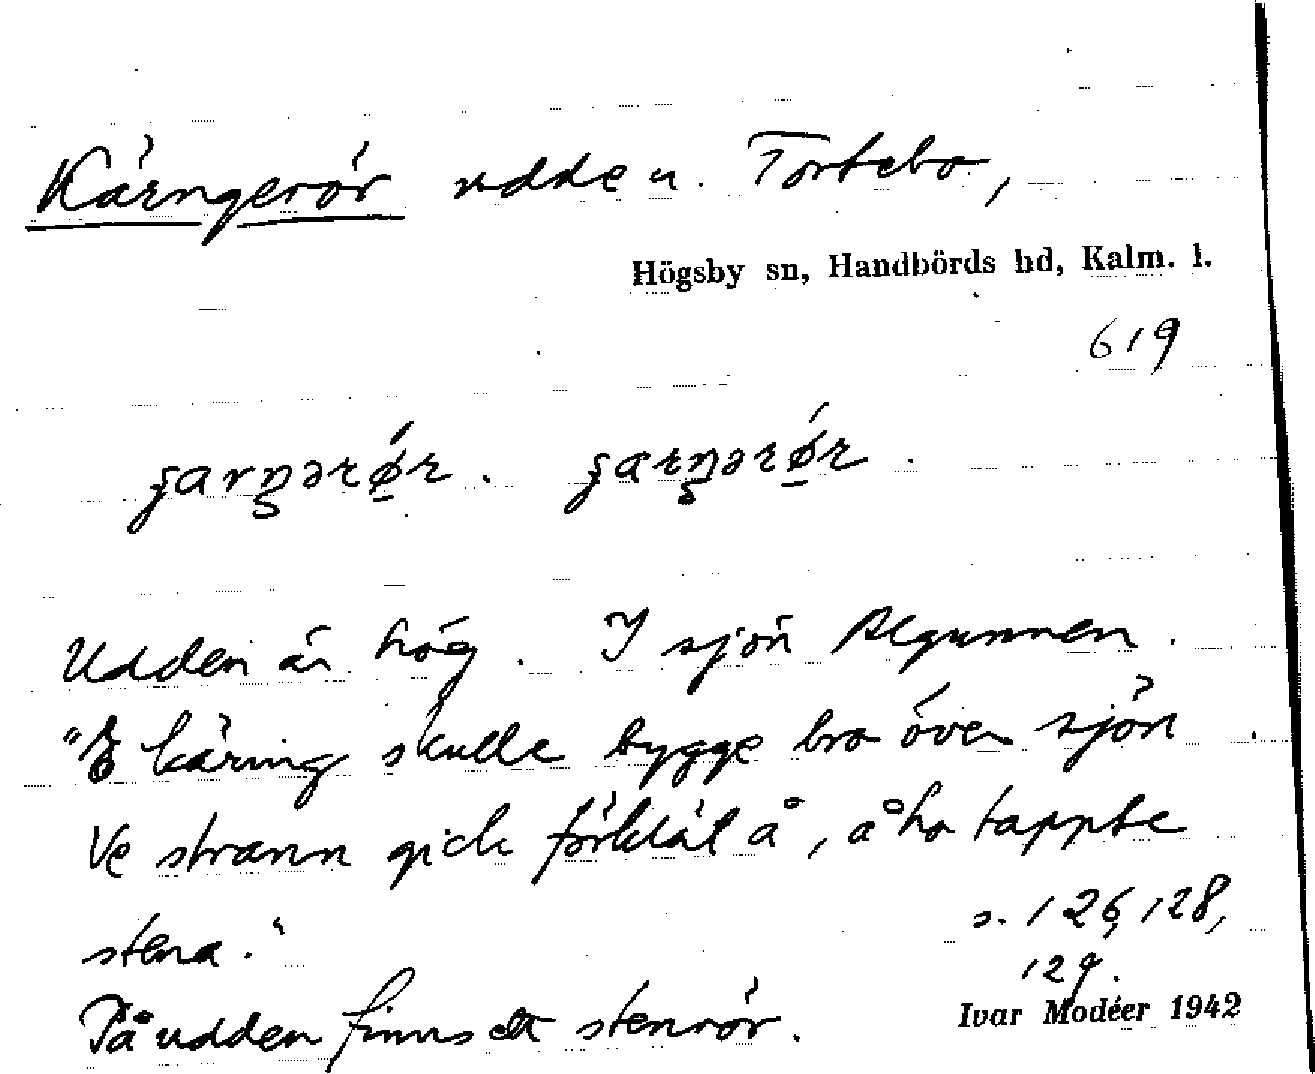 Kärngerör udde u. Tortebo,
Högsby sn, Handbörds hd, Kalm. l.
619
Udden är hög. I sjön Algunnen.
"E käring skulle bygge bro över sjön.
Ve strann gick förklät å, å ho tappte
stena."
s. 126, 128,
129.
På udden finns ett stenrör.
Ivar Modéer 1942